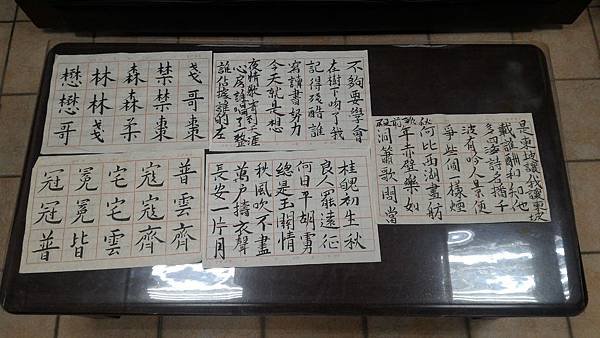 戔哥棗
禁禁棗
森森柔
林林戔
懋懋哥
不夠要學會
在樹下吻了我
記得殘酷誰
寫讀書努力
今天就是想
夜情歌
心房錯唱了整
誰佔據誰的左
是東坡讓我
載誰酬和和他
多篇詩多措千
波有吟人景便
爭些個一樣煙
何比西湖畫舫
年赤壁樂如
洞簫歌問當
普雲齊
寇寇齊
宅宅雲
冕冕皆
冠冠普
桂魄初生秋
良人罷遠征
何日平胡虜
總是玉關情
秋風吹不盡
萬戶擣衣聲
長安一片月